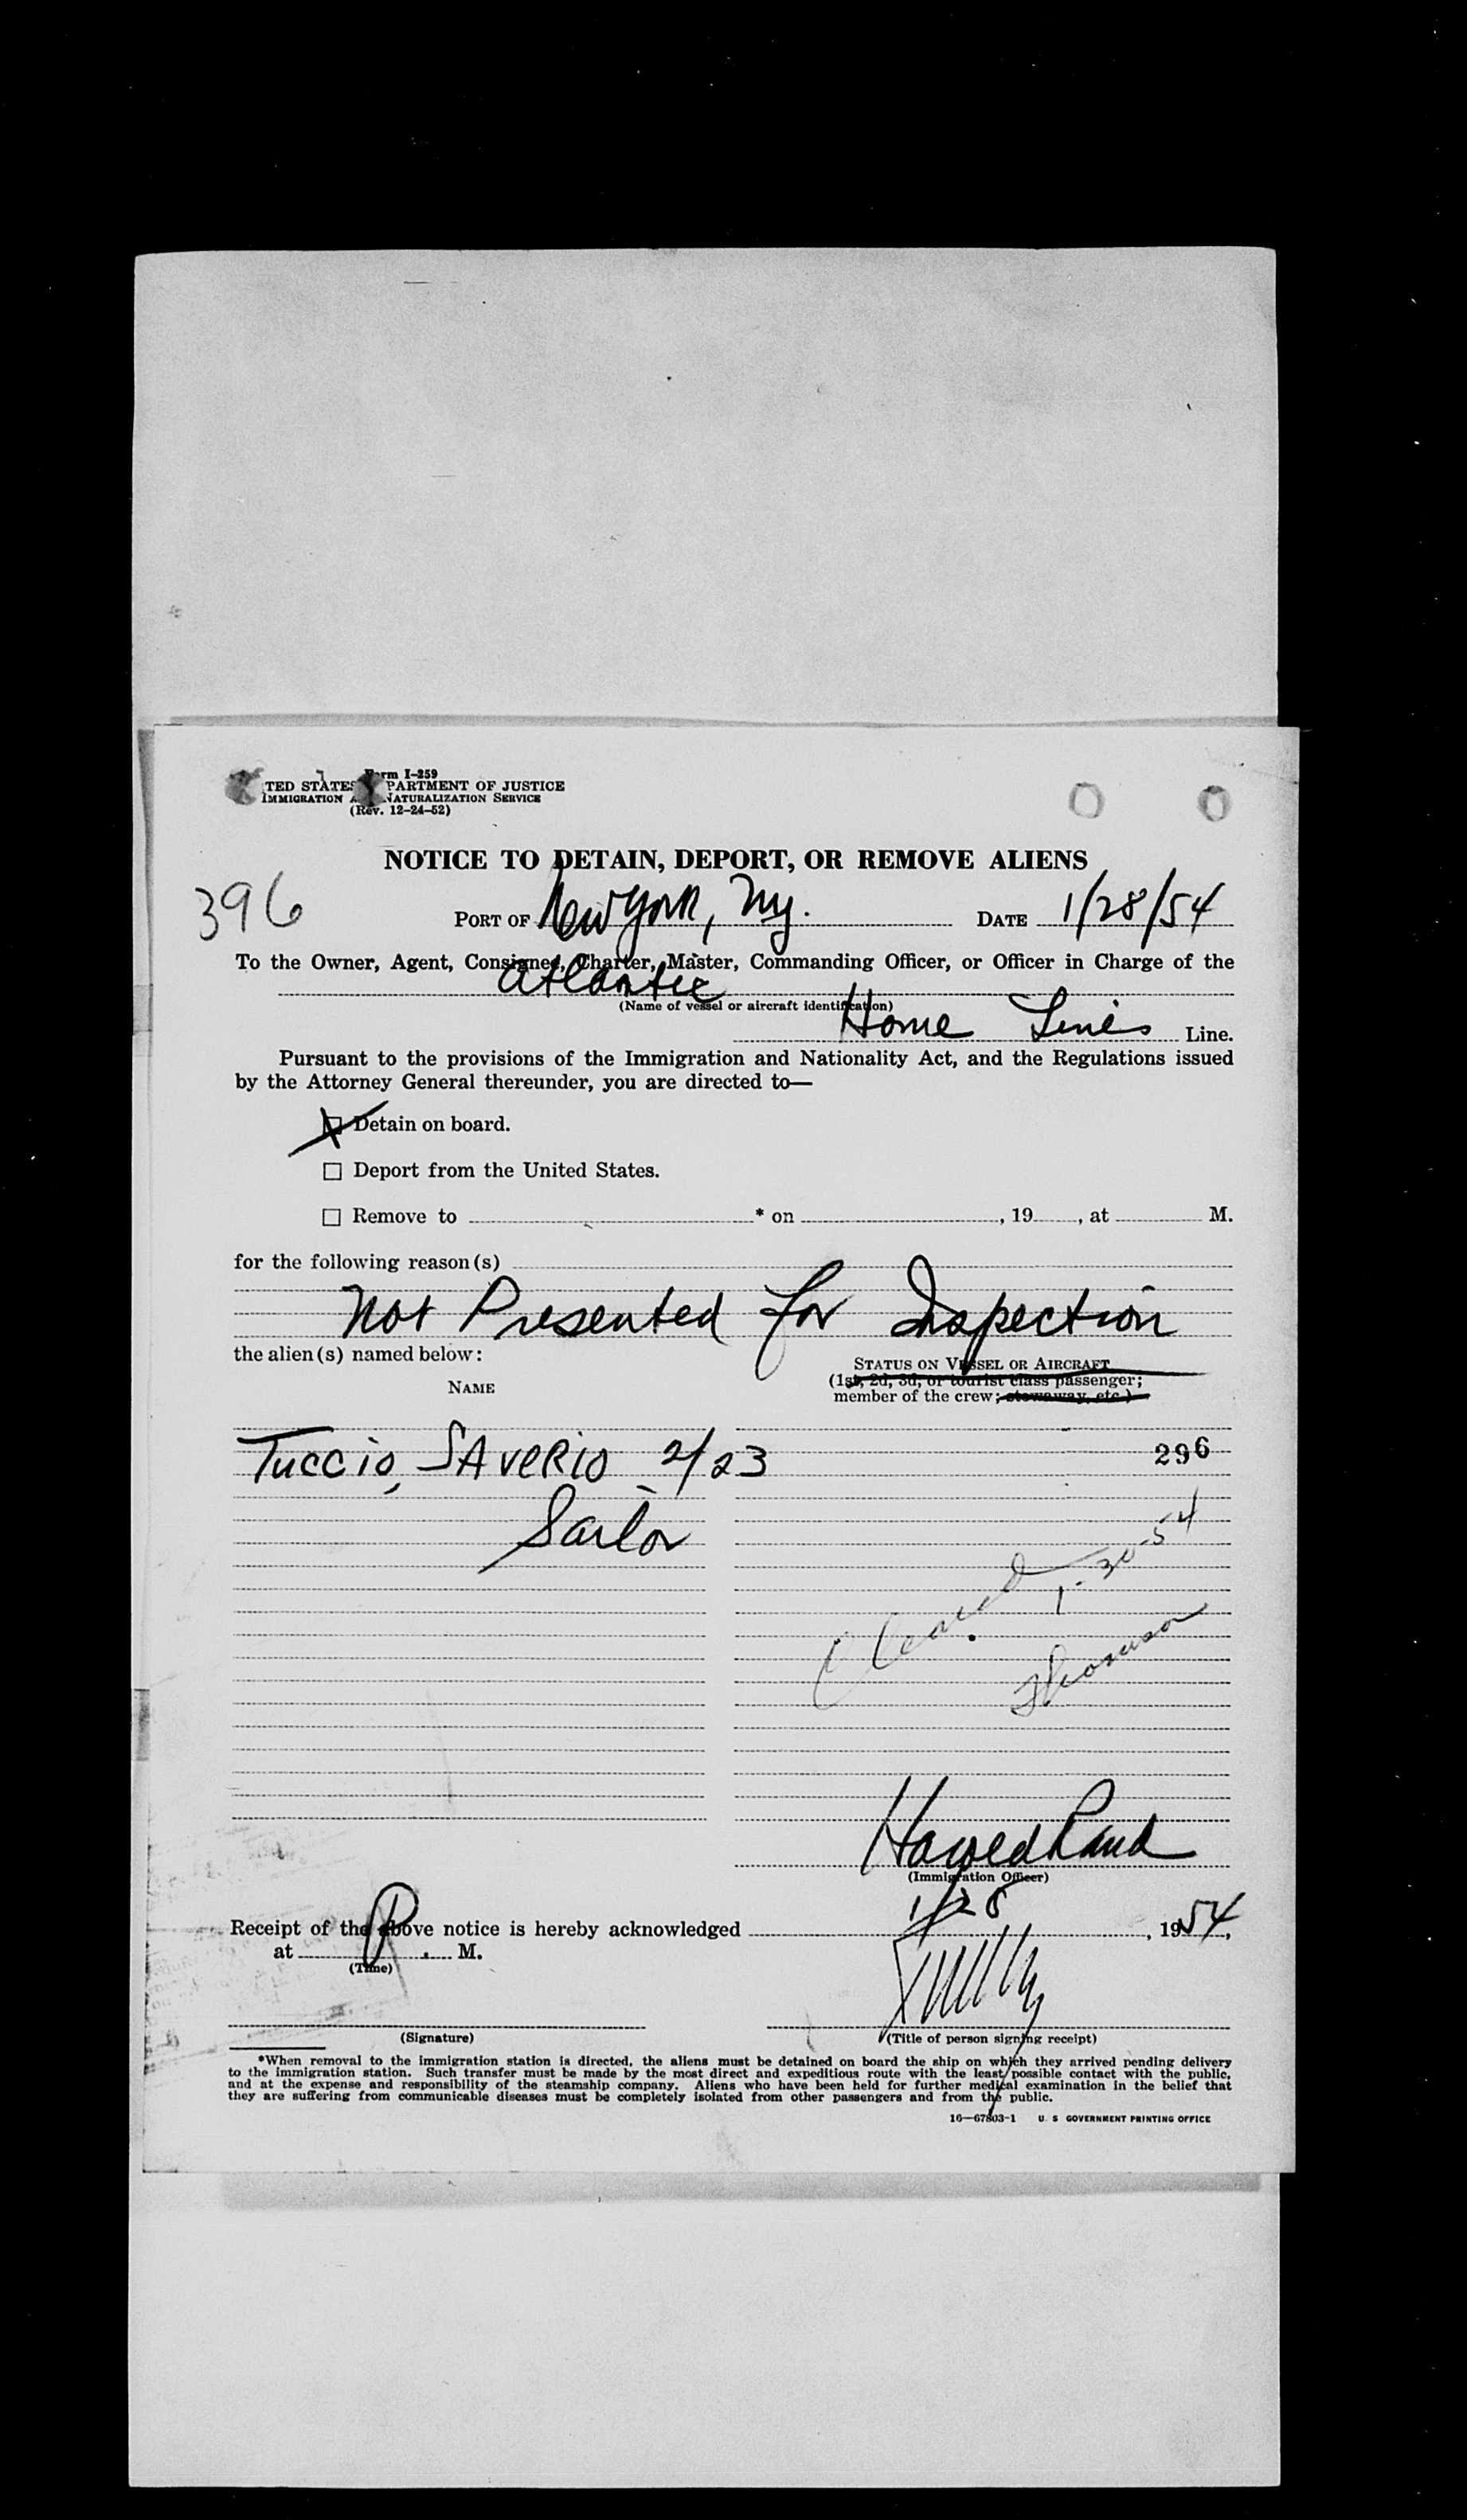 Form I-259
TED STATES DEPARTMENT OF JUSTICE
IMMIGRATION AND NATURALIZATION SERVICE
(Rev. 12-24-52)
NOTICE TO DETAIN, DEPORT, OR REMOVE ALIENS
396
PORT OF New York, Ny. DATE 1/28/54
To the Owner, Agent, Consignee, Charter, Master, Commanding Officer, or Officer in Charge of the
Atlantic
(Name of vessel or aircraft identification)
Home Lines Line.
Pursuant to the provisions of the Immigration and Nationality Act, and the Regulations issued
by the Attorney General thereunder, you are directed to—
X Detain on board.
☐ Deport from the United States.
☐ Remove to * on , 19 , at M.
for the following reason(s)
Not Presented for Inspection
the alien(s) named below:
NAME
STATUS ON VESSEL OR AIRCRAFT
(1st, 2d, 3d, or tourist class passenger;
member of the crew; stowaway, etc.)
Tuccio, SAVERIO 2/23
296
Sailor
Cleared 1-30-54
Thomson
Harold Rand
(Immigration Officer)
Receipt of the above notice is hereby acknowledged 1/28, 1954,
at P. M.
(Time)
(Signature)
(Title of person signing receipt)
*When removal to the immigration station is directed, the aliens must be detained on board the ship on which they arrived pending delivery
to the immigration station. Such transfer must be made by the most direct and expeditious route with the least possible contact with the public,
and at the expense and responsibility of the steamship company. Aliens who have been held for further medical examination in the belief that
they are suffering from communicable diseases must be completely isolated from other passengers and from the public.
16—67803-1 U. S GOVERNMENT PRINTING OFFICE